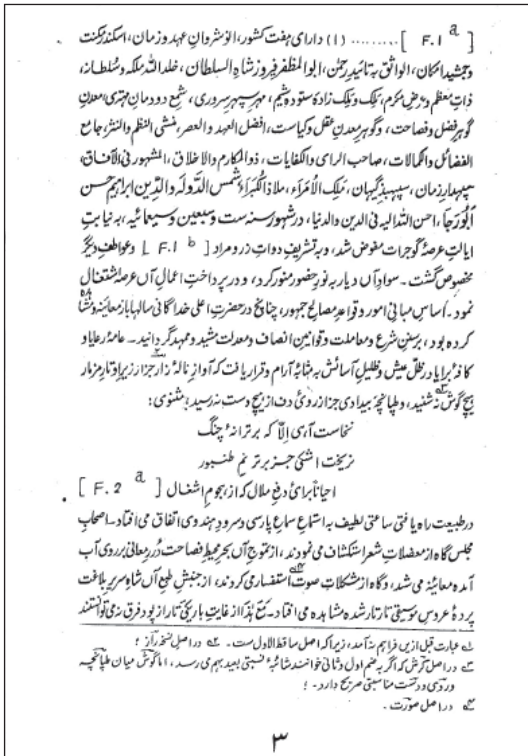 [ F.1 a ] ......... (۱) دارای ہفت کشور، انوشروانِ عہد و زمان، اسکندر مکنت
و جمشید امکان، الواثق به تائید رحمٰن، ابوالمظفر فیروز شاہ السلطان، خلد اللہ ملکہ و سلطانہ،
ذاتِ معظم و عرض مکرم، مَلِک و مَلِک زادۂ ستودہ شیم، مہرِ سپہرِ سروری، شمع دودمان مہتری، معدنِ
گوہرِ فضل و فصاحت، و گوہرِ معدنِ عقل و کیاست، افضل العہد و العصر، منشی النظم و النثر، جامع
الفضائل و الکمالات، صاحب الرای و الکفایات، ذو المکارم و الاخلاق، المشہور فی الآفاق،
سپہدارِ زمان، سپہبذِ گیہان، مَلِک الاُمَراَء، ملاذ الکُبَراَء شمس الدَّولہ و الدِّین ابراہیم حسن
اَبُورَجَا، احسن اللہ الیہ فی الدین و الدنیا، در شہور سنہ ست و سبعین و سبعمائیہ، بہ نیابتِ
ایالتِ عرصۂ گوجرات مفوض شد، و بہ تشریفِ دواتِ زر و مراد [ F.1 b ] و عواطفِ دیگر
مخصوص گشت۔ سوادِ آں دیار بہ نورِ حضور منور کرد، و در پرداختِ اعمالِ آں عرصہ اشتغال
نمود۔ اساسِ مبانیِ امور و قواعدِ مصالحِ جمہور، چنانچ در حضرتِ اعلی خدا گانی سالہا باز معائینہ و
کردہ بود، بر سننِ شرع و معاملت و قوانینِ انصاف و معدلت مشید و ممہد گردانید۔ عامۂ رعایا و
کافۂ برایا در ظلِّ عیش و ظلیلِ آسائش بہ مثابۂ آرام و قرار یافت کہ آوازِ نالۂ زار جز از زیر او تارِ مزمار
ہیچ گوش نہ شنید، و طپانچۂ بیدادی جز از روئ دف از ہیچ دست نہ رسید؛ مثنوی:
نخاست آہی اِلّا کہ بر ترانۂ چنگ
نریخت اشکی جز بر ترنمِ طنبور
احیاناً برائ دفعِ ملال کہ از ہجومِ اشغال [ F.2 a ]
در طبیعت راہ یافتی ساعتی لطیف بہ استماعِ سماعِ پارسی و سرودِ ہندوی اتفاق می افتاد۔ اصحابِ
مجلس گاہ از معضلاتِ شعر استکشاف می نمودند، از تموجِ آں بحرِ محیطِ فصاحت دُررِ معانی بر روی آب
آمدہ معائینہ می شد، و گاہ از مشکلاتِ صوت استفسار می کردند، از جنبشِ طبعِ آں شاہِ سریرِ بلاغت
پردۂ عروسِ موسیقی تار تار شدہ مشاہدہ می افتاد۔ مَعَ ہٰذا از غایتِ باریکی تار از پود فرق نمی توانستند
۱؎ عبارت قبل ازیں فراہم نہ آمد، زیرا کہ اصل ساقط الاول ست۔ ۲؎ در اصل نسخہ رآز ؛
۳؎ در اصل گرش کہ اگر بہ ضم اول و ثانی خوانند شائبۂ نسبتی بعید بہم می رسد، اما گوش میان طپانچہ
و روی و دست مناسبتی صریح دارد۔ ؛
۴؎ در اصل صورت۔
۳